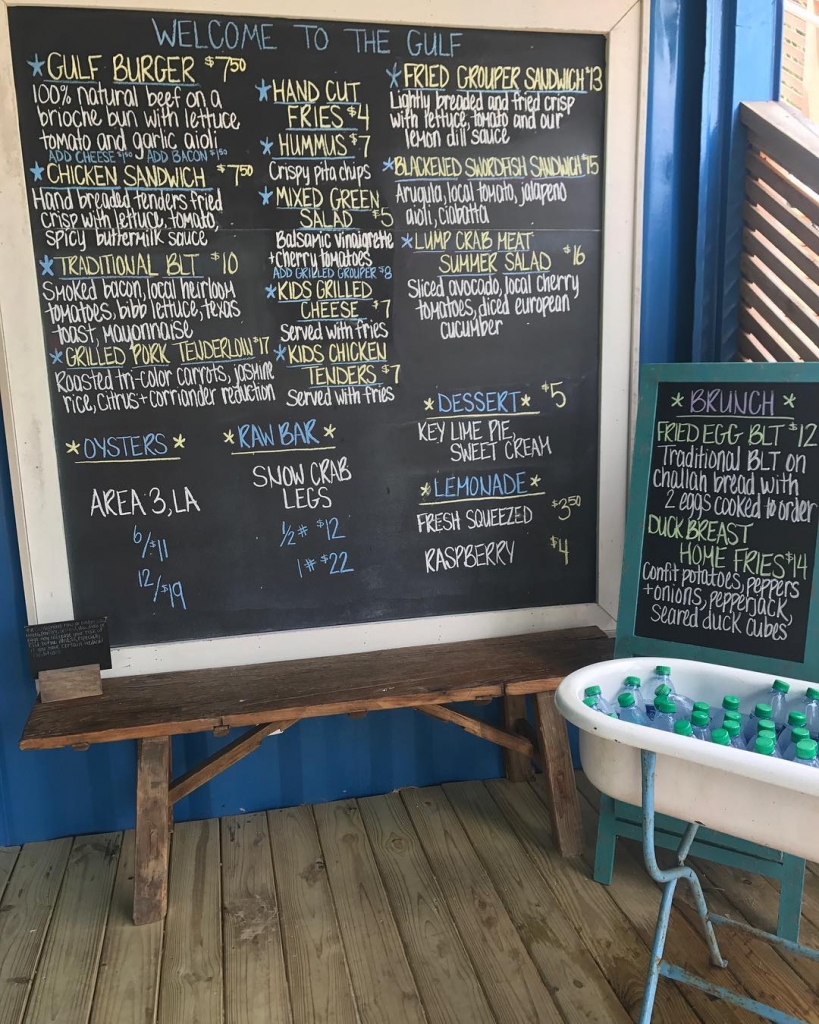 WELCOME TO THE GULF
GULF BURGER $7.50
100% natural beef on a
brioche bun with lettuce
tomato and garlic aioli
ADD CHEESE $1.50 ADD BACON $1.50
CHICKEN SANDWICH $7.50
Hand breaded tenders fried
crisp with lettuce, tomato,
spicy buttermilk sauce
TRADITIONAL BLT $10
Smoked bacon, local heirloom
tomatoes, bibb lettuce, texas
toast, mayonnaise
GRILLED PORK TENDERLOIN $17
Roasted tri-color carrots, jasmine
rice, citrus + corriander reduction
HAND CUT
FRIES $4
HUMMUS $7
Crispy pita chips
MIXED GREEN
SALAD $5
Balsamic vinaigrette
+ cherry tomatoes
ADD GRILLED GROUPER $8
KIDS GRILLED
CHEESE $7
Served with fries
KIDS CHICKEN
TENDERS $7
Served with fries
FRIED GROUPER SANDWICH $13
Lightly breaded and fried crisp
with lettuce, tomato and our
lemon dill sauce
BLACKENED SWORDFISH SANDWICH $15
Arugula, local tomato, jalapeno
aioli, ciabatta
LUMP CRAB MEAT
SUMMER SALAD $16
Sliced avocado, local cherry
tomatoes, diced european
cucumber
OYSTERS
AREA 3, LA
6/$11
12/$19
RAW BAR
SNOW CRAB
LEGS
1/2 # $12
1 # $22
DESSERT $5
KEY LIME PIE,
SWEET CREAM
LEMONADE
FRESH SQUEEZED $3.50
RASPBERRY $4
BRUNCH
FRIED EGG BLT $12
Traditional BLT on
challah bread with
2 eggs cooked to order
DUCK BREAST
HOME FRIES $14
Confit potatoes, peppers
+ onions, pepperjack,
seared duck cubes